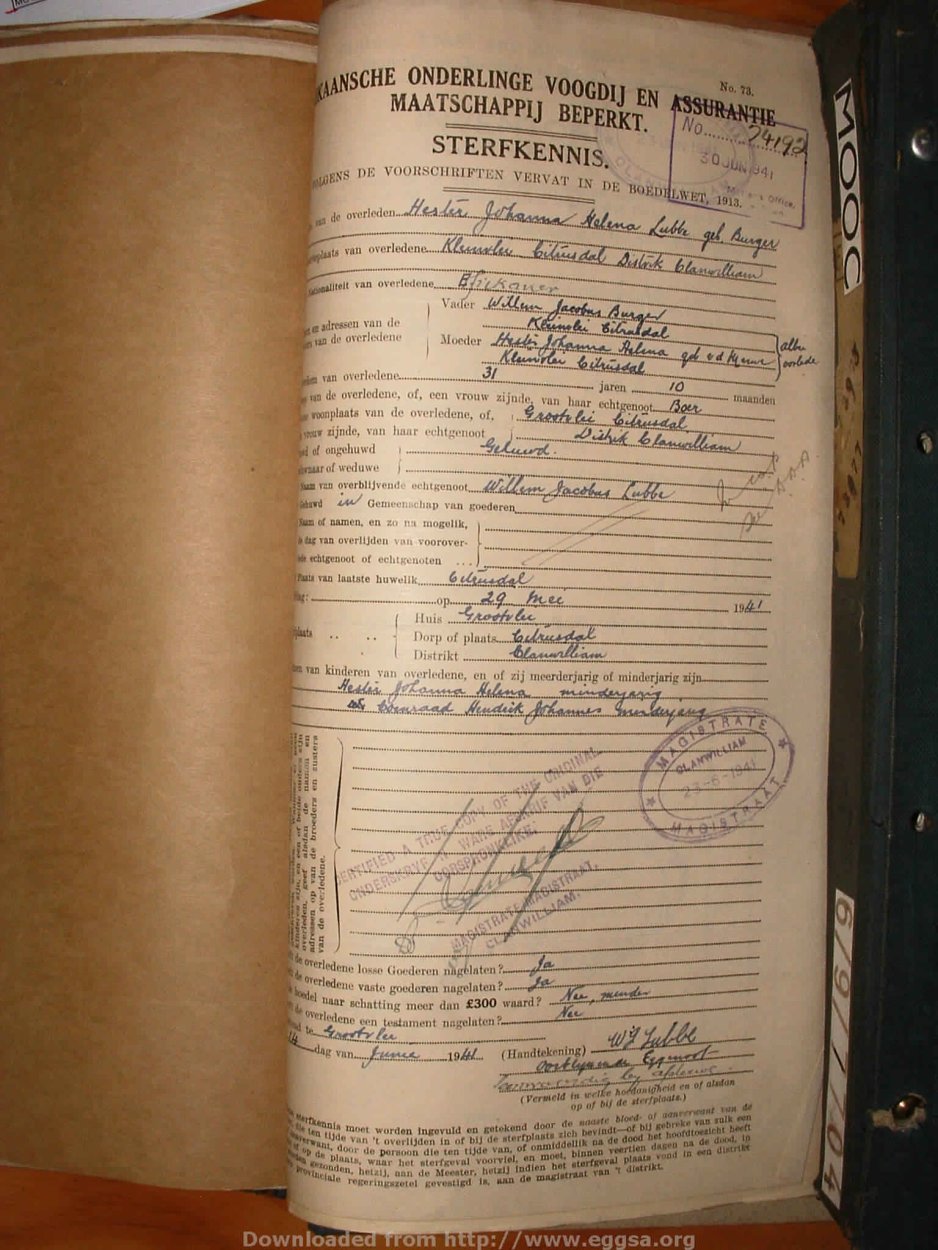 No. 73.
KAANSCHE ONDERLINGE VOOGDIJ EN ASSURANTIE
MAATSCHAPPIJ BEPERKT.
No. 74192
30 JUN 1941
STERFKENNIS.
VOLGENS DE VOORSCHRIFTEN VERVAT IN DE BOEDELWET, 1913.
van de overleden Hester Johanna Helena Lubbe geb. Burger
plaats van overledene Kleinvlei Citrusdal Distrik Clanwilliam
Nationaliteit van overledene Afrikaner
en adressen van de
van de overledene
Vader Willem Jacobus Burger
Kleinvlei Citrusdal
Moeder Hester Johanna Helena geb v d Merwe
Kleinvlei Citrusdal
albei
oorlede
van overledene 31 jaren 10 maanden
van de overledene, of, een vrouw zijnde, van haar echtgenoot Boer
woonplaats van de overledene, of, Grootvlei Citrusdal
vrouw zijnde, van haar echtgenoot Distrik Clanwilliam
of ongehuwd Gehuwd.
of weduwe
Naam van overblijvende echtgenoot Willem Jacobus Lubbe
Gehuwd in Gemeenschap van goederen
Naam of namen, en zo na mogelik,
de dag van overlijden van voorover-
echtgenoot of echtgenoten ...
Plaats van laatste huwelik Citrusdal
op 29 Mei 1941
Huis Grootvlei
Dorp of plaats Citrusdal
Distrikt Clanwilliam
van kinderen van overledene, en of zij meerderjarig of minderjarig zijn
Hester Johanna Helena minderjarig
Coenraad Hendrik Johannes minderjarig
MAGISTRATE
CLANWILLIAM
23-6-1941
MAGISTRAAT
kinderen zijn, en een of beide ouders zijn
overleden, geef alsdan de namen en
adressen op van de broeders en zusters
van de overledene.
CERTIFIED A TRUE COPY OF THE ORIGINAL
VAN DIE
OORSPRONKLIKE.
MAGISTRATE MAGISTRAAT,
CLANWILLIAM.
de overledene losse Goederen nagelaten? Ja
de overledene vaste goederen nagelaten? Ja
boedel naar schatting meer dan £300 waard? Nee, minder
de overledene een testament nagelaten? Nee
te Grootvlei
24 dag van Junie 1941 (Handtekening) W J Lubbe
Oorblywende Eggenoot
Teenwoordig by afsterwe
(Vermeld in welke hoedanigheid en of alsdan
op of bij de sterfplaats.)
sterfkennis moet worden ingevuld en getekend door de naaste bloed- of aanverwant van de
die ten tijde van 't overlijden in of bij de sterfplaats zich bevindt—of bij gebreke van zulk een
aanverwant, door de persoon die ten tijde van, of onmiddellik na de dood het hoofdtoezicht heeft
of op de plaats, waar het sterfgeval voorviel, en moet, binnen veertien dagen na de dood, in
gezonden, hetzij, aan de Meester, hetzij indien het sterfgeval plaats vond in een distrikt
provinciale regeringszetel gevestigd is, aan de magistraat van 't distrikt.
MOOC
6/9/
Downloaded from http://www.eggsa.org